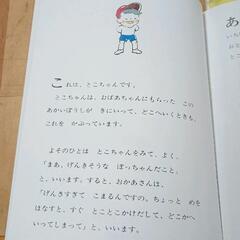 これは、とこちゃんです。
とこちゃんは、おばあちゃんにもらった この
あかいぼうしが きにいって、どこへいくときも、
これを かぶっています。
よそのひとは とこちゃんをみて、よく、
「まあ、げんきそうな ぼっちゃんだこと」
と、いいます。すると、おかあさんは、
「げんきすぎて こまるんですの。ちょっと めを
はなすと、すぐ とことこかけだして、どこかへ
いってしまって」と、いいます。
あ